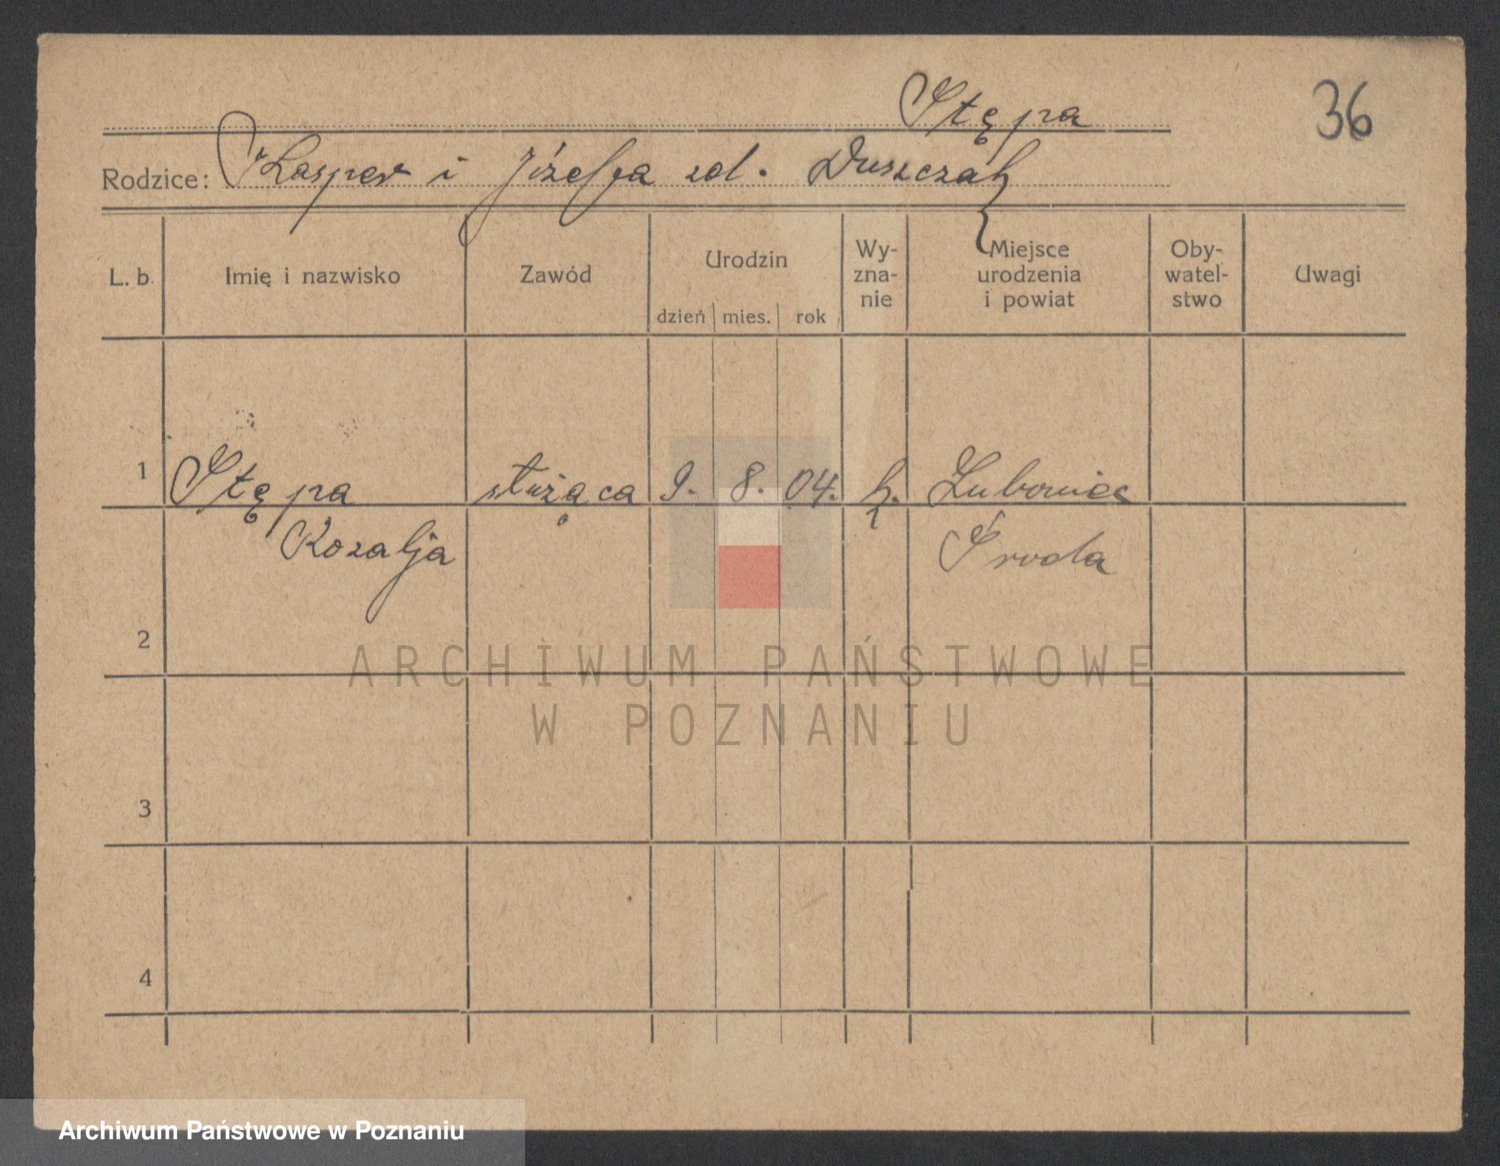 Stępa
36
Rodzice: Kasper i Józefa zd. Duszczak
L. b. Imię i nazwisko Zawód Urodzin dzień mies. rok Wy-zna-nie Miejsce urodzenia i powiat Oby-watel-stwo Uwagi
1 Stępa służąca 9. 8. 04. k. Luboniec
Rozalja Środa
2
ARCHIWUM PAŃSTWOWE
W POZNANIU
3
4
Archiwum Państwowe w Poznaniu